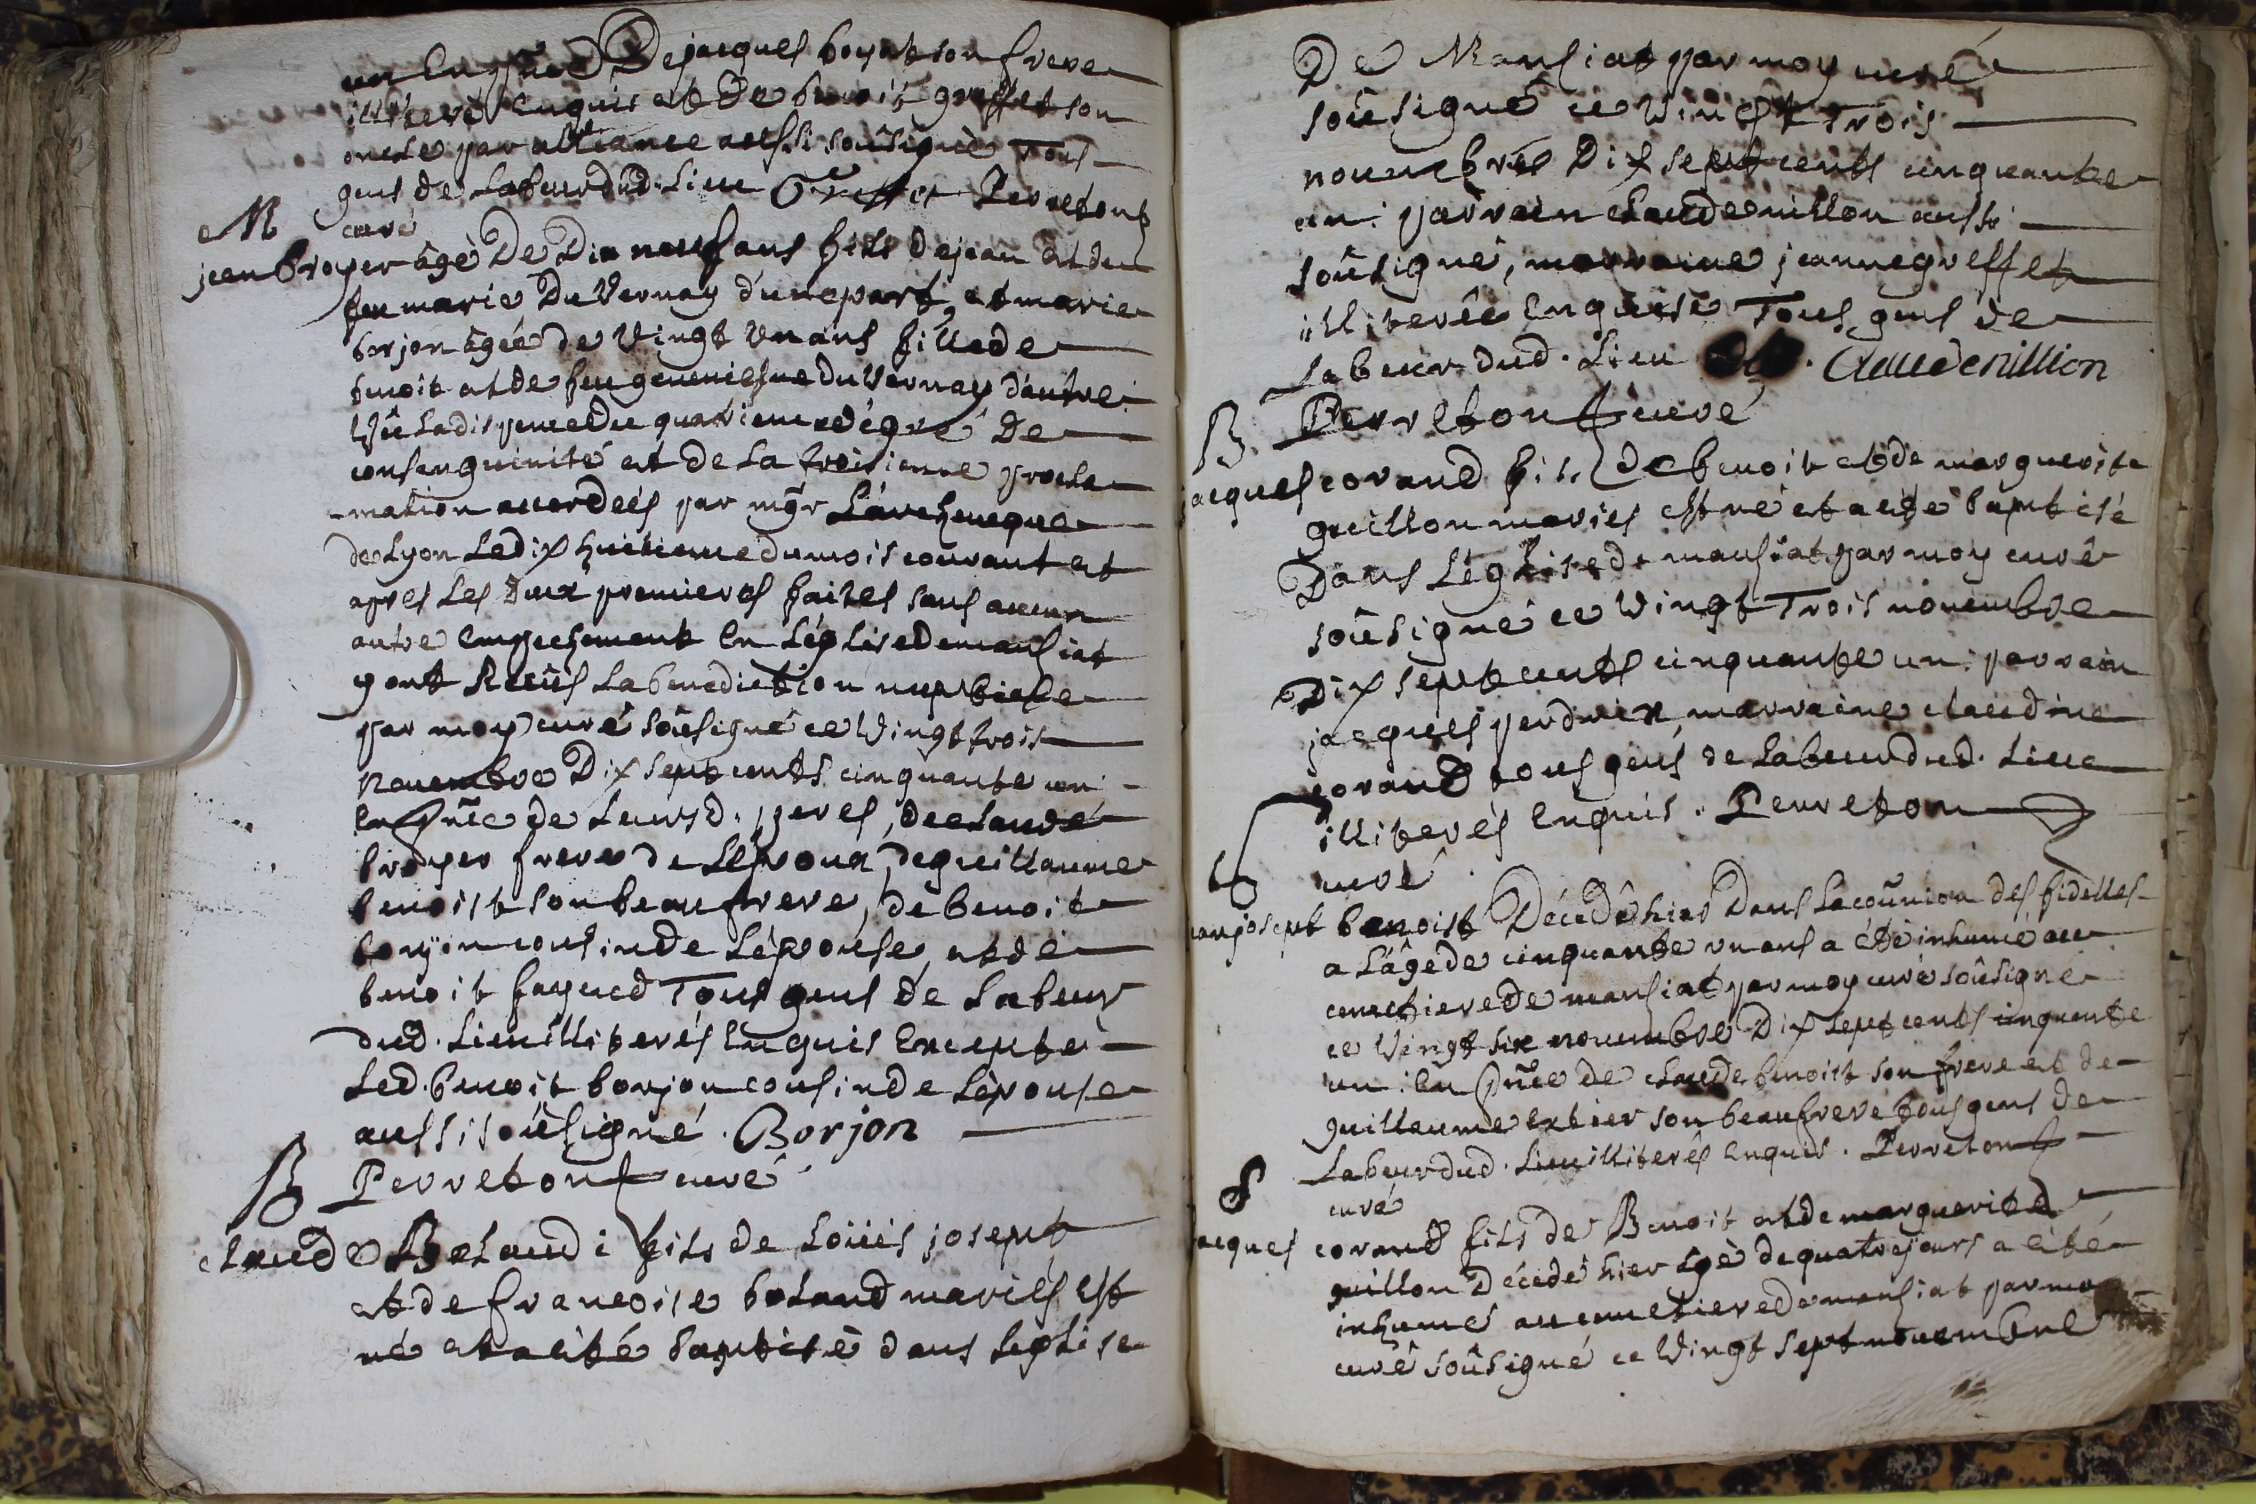 un en pñce De jacques boyat son frere
illiteré enquis et de benoit greffet son
oncle par alliance aussi soûsigné Tous
gens de Labeur dud. Lieu Greffet Perreton
curé
M
jean broyer âgé De Dix neuf ans fils de jean et de
feu marie Du Vernay d'une part, et marie
borjon âgée de Vingt Un ans fille de
benoit et de feu geneviesve du Vernay d'autre:
Vû La dispence du quatrieme dégré de
consanguinité et de La troisieme procla
-mation accordées par mgr L'archeveque
de Lyon Le dix huitieme du mois courant et
apres Les deux premieres faites sans aucun
autre empechement en L'églisedemansiat
y ont Reçûs La benediction nuptiale
par moy curé soûsigné ce Vingt trois
novembre Dix sept cents cinquante un
en pñce de Leurs d. peres, de claude
broyer frere de L'époux, de guillaume
benoist son beaufrere, de benoit
borjon cousin de L'épouse, et de
benoit fayend Tous gens de Labeur
dud. Lieu illiterés Enquis Excepté
Led. benoit borjon cousin de L'épouse
aussi soûsigné. Borjon
Perreton curé
B
claude Boland i fils de Loüis josept
et de francoise boland mariés Est
né et a eté baptisé dans L'église
De Mansiat par moy curé
soûsigné ce Vingt Trois
novembre Dix sept cents cinquante
un: parrain claude nillon aussi
soûsigné, marraine jeanne greffet
illiterée Enquise Tous gens de
Labeur dud. Lieu. Claude nillion
Perreton curé
B
jacques corand fils de benoit et de marguerite
guillon mariés est né et a eté baptisé
Dans L'église de mansiat par moy curé
soûsigné ce Vingt Trois novembre
Dix sept cents cinquante un: parrain
jacques perdrix, marraine claudine
corand tous gens de Labeur dud. Lieu
illiterés Enquis. Perreton
curé
josept benoist Décedé hier Dans La coûnion des fidelles
a L'âge de cinquante un ans a été inhumé au
cemetiere de mansiat par moy curé soûsigné
ce Vingt six novembre Dix sept cents cinquante
un: en pñce de claude benoist son frere et de
guillaume son beaufrere tous gens de
Labeur dud. Lieu illiterés enquis. Perreton
curé
jacques corand fils de Benoit et de marguerite
guillon Décedé hier âgé de quatre jours a eté
inhumé au cemetiere de mansiat par moy
curé soûsigné ce Vingt sept novembre